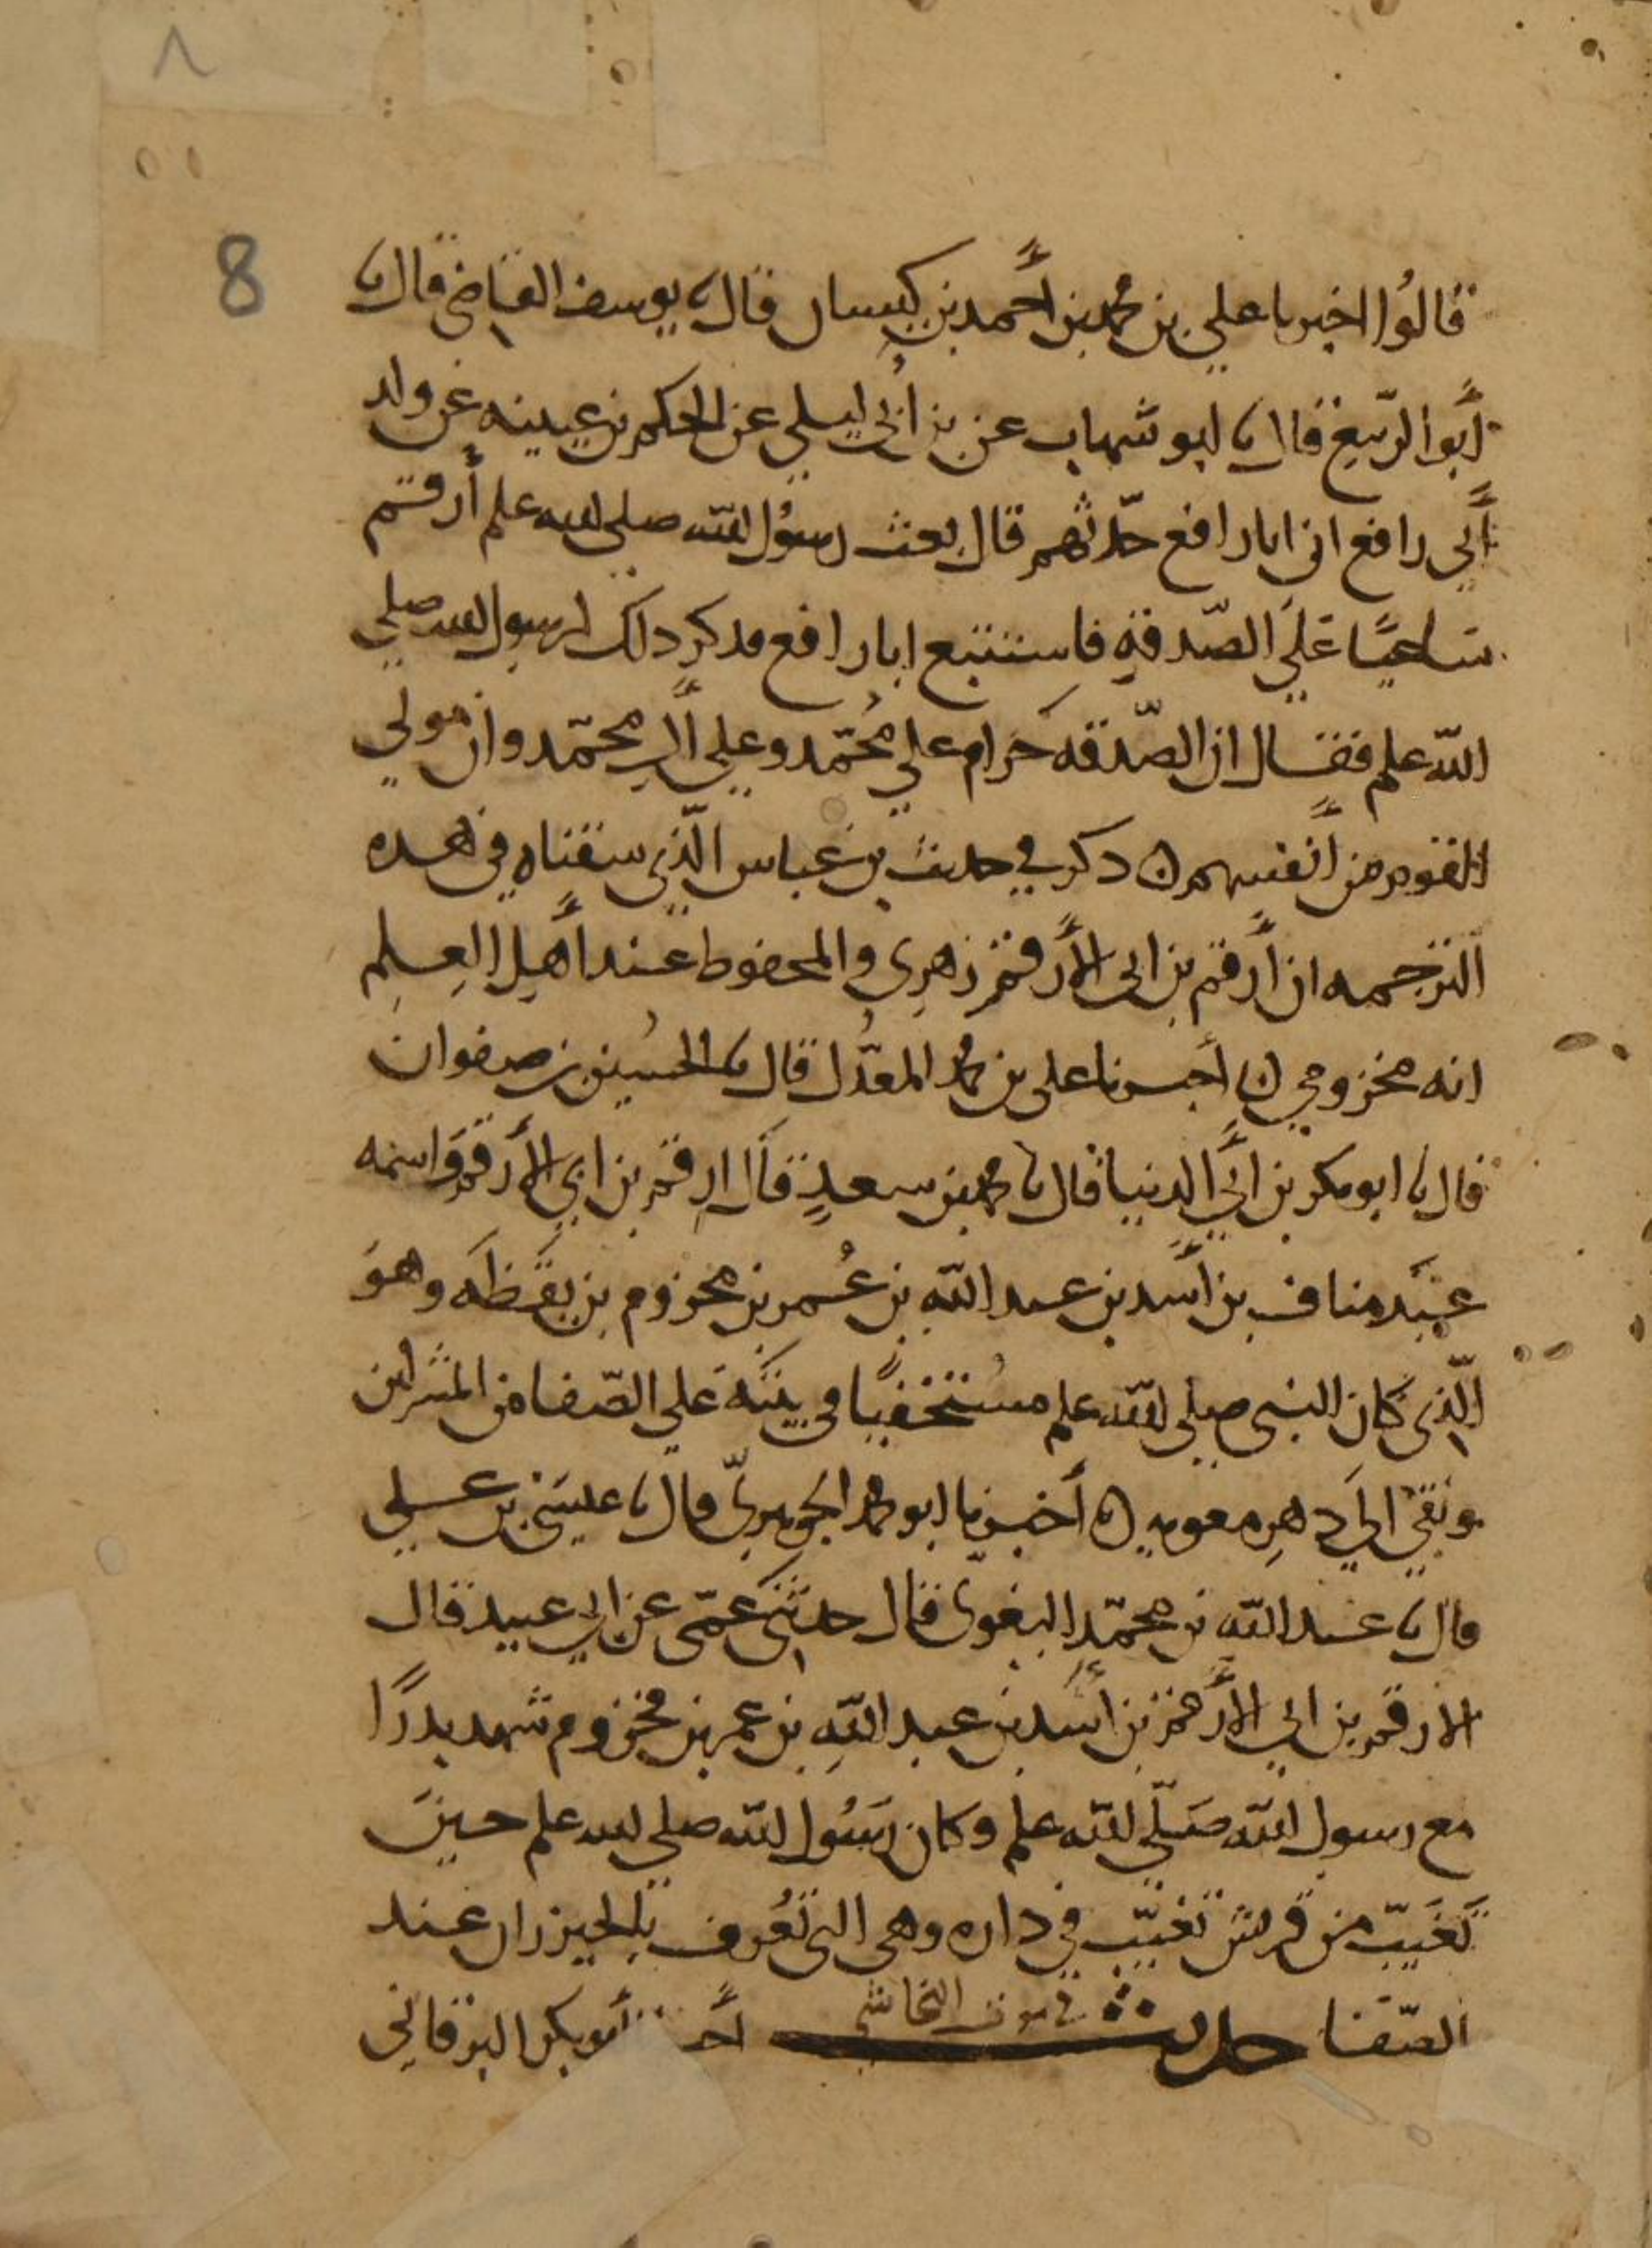 ٨
8
قالوا اخبرنا علي بن محمد بن أحمد بن كيسان قال نا يوسف القاضي قال نا
أبو الربيع قال نا ابو شهاب عن بن أبي ليلي عن الحكم بن عيينه عن ولد
أبي رافع ان ابا رافع حدثهم قال بعث رسول الله صلى الله علم أرقم
ساعيًا علي الصّدقةِ فاستتبع ابا رافع فذكر ذلك لرسول الله صلي
الله علم فقال ان الصّدقه حرام علي مُحمّد وعلي آل محمّد وان مولي
القوم من أنفسهم ن ذكر في حديث بن عباس الّذي سقناه في هذه
الترجمه ان أرقم بن ابي الأرقم زهري والمحفوظ عند أهلِ العِلمِ
انه مخزومي ن أخبرنا علي بن محمد المعدّل قال نا الحسُين بن صفوان
قال نا ابو بكر بن أبي الدنيا قال نا محمد بن سعدٍ قال ارقم بن ابي الأرقم واسمه
عبَد مناف بن أسد بن عبد الله بن عُمر بن مخزوم بن يقَظَه وهوَ
الّذي كان النبي صلي الله علم مُستخفيًا في بيته علي الصّفا من المشركين
وبقي الي دهرِ معويه ن أخبرنا ابو محمد الجوهريّ قال نا عيسَى بن علي
قال نا عبد الله بن محمّدٍ البغوي قال حدثني عمّي عن ابي عبيد قال
الارقم بن ابي الأرقم بن أسد بن عبد اللهِ بن عمر بن مخزوم شهد بدرًا
مع رسول الله صَلّي الله علم وكان رسُول الله صلي الله علم حين
تَغَيبّ من قريش تغيّب في داره وهي التي تُعرف بالخيزران عند
الصّفا حديث في موت النجاشي أخـ أبو بكر البرقاني